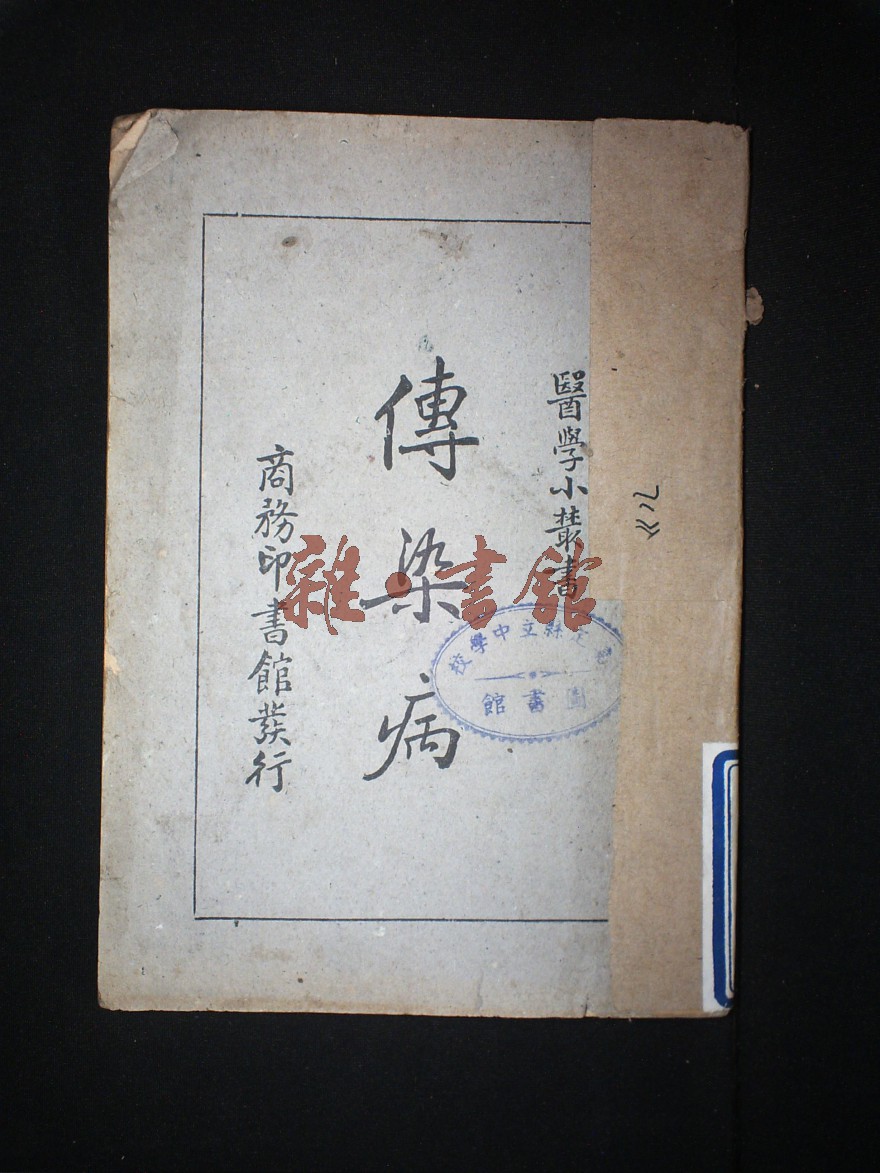 醫學小叢書
傳染病
商務印書館發行
雜·書館
縣立中學校
圖書館